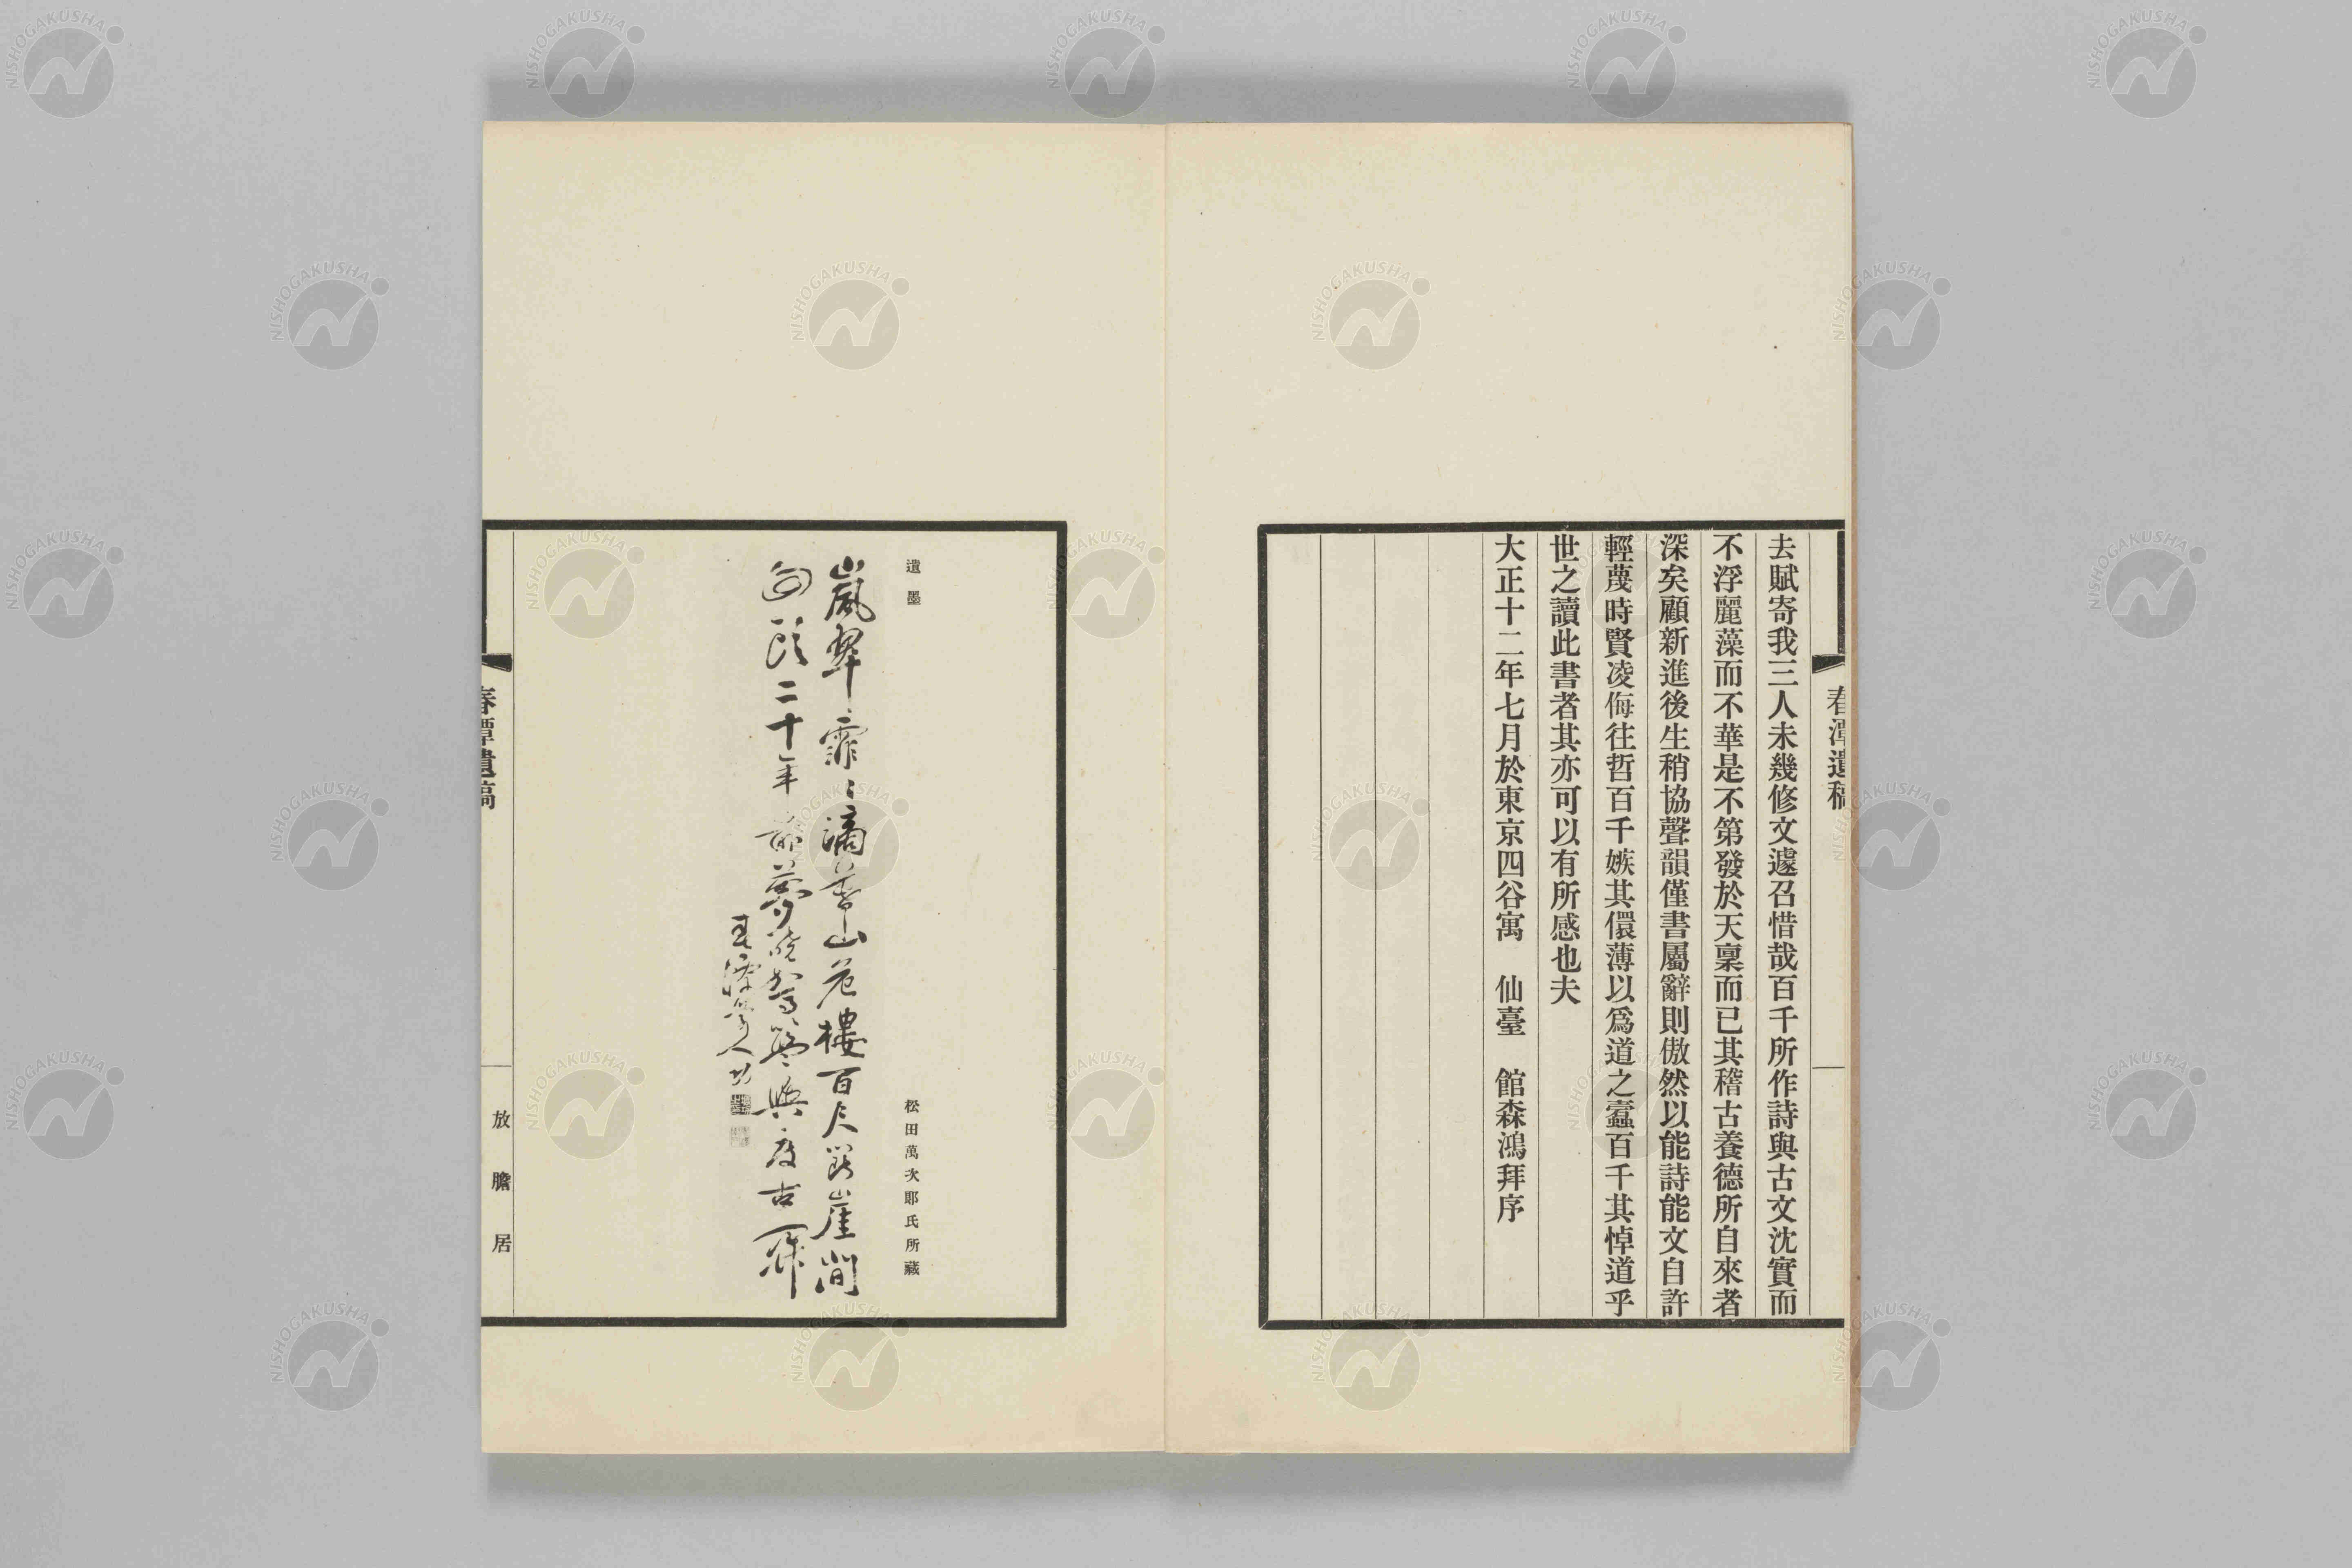 春潭遺稿
去賦寄我三人未幾修文遽召惜哉百千所作詩與古文沈實而
不浮麗藻而不華是不第發於天稟而已其稽古養德所自來者
深矣顧新進後生稍協聲韻僅書屬辭則傲然以能詩能文自許
輕蔑時賢凌侮往哲百千嫉其儇薄以爲道之蠹百千其悼道乎
世之讀此書者其亦可以有所感也夫
大正十二年七月於東京四谷寓 仙臺 館森鴻拜序
遺墨
松田萬次郎氏所藏
嵐翠霏〻滴葦山危樓百尺闢崖間
回頭二十年前夢 與 古
春潭 人
春潭遺稿
放膽居
NISHOGAKUSHA